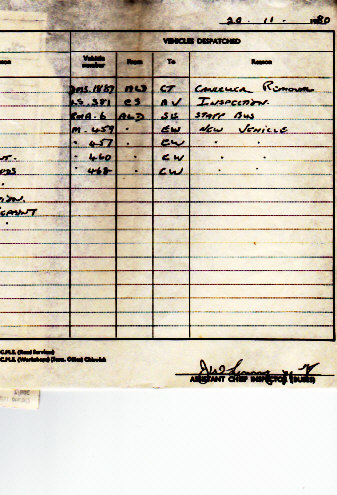 20 . 11 . 1980
VEHICLES DESPATCHED
Vehicle number From To Reason
DMS.1887 ALD CT CARRIER REMOVAL
LS.381 CS AV INSPECTION
RMA.6 ALD SU STAFF BUS
M.459 " EW NEW VEHICLE
" 457 " EW " "
" 460 " EW " "
" 468 " EW
C.M.E. (Road Services)
C.M.E. (Workshops) (Supn. Office) Chiswick
ASSISTANT CHIEF INSPECTOR (BUSES)